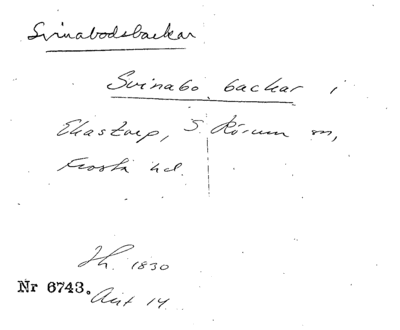 Svinabodsbackar
Svinabo backar i
Ekastorp, S. Rörum sn,
Frosta hd.
Jh. 1830
Nr 6743. Akt 14